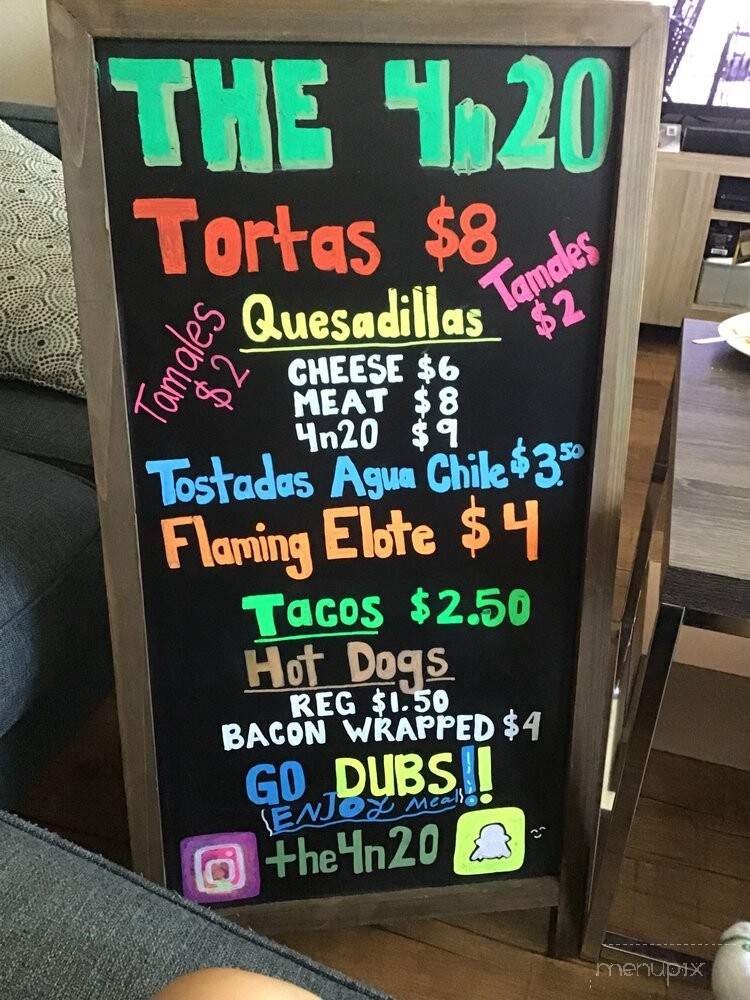 THE 4n20
Tortas $8
Tamales $2
Tamales $2
Quesadillas
CHEESE $6
MEAT $8
4n20 $9
Tostadas Agua Chile $3.50
Flaming Elote $4
Tacos $2.50
Hot Dogs
REG $1.50
BACON WRAPPED $4
GO DUBS!!
ENJOY Meal
the4n20
menupix